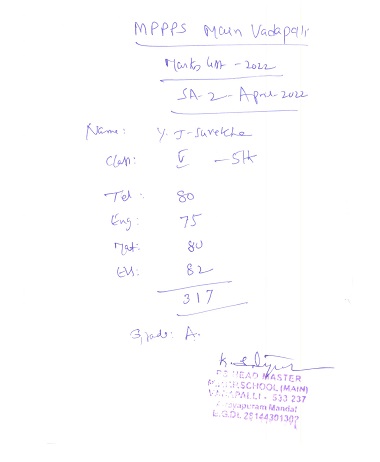 MPPPS Main Vadapalli
Marks list - 2022
SA-2 - April-2022
Name: Y. J-Surekha
Class: V - 5th
Tel: 80
Eng: 75
Mat: 80
EVS: 82
317
Grade: A
HEAD MASTER
SCHOOL (MAIN)
VADAPALLI - 533 237
Mandal